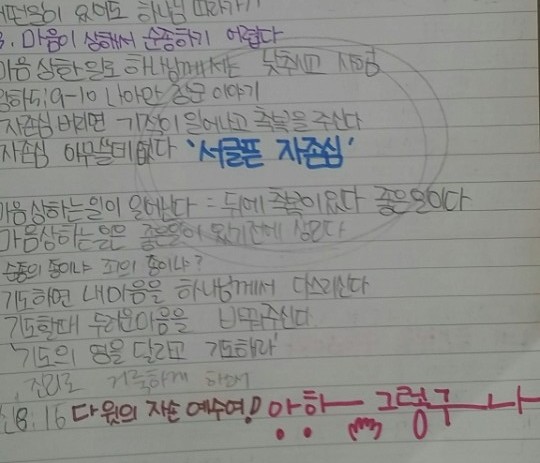 어떤일이 있어도 하나님 따라가기
3. 마음이 상해서 순종하기 어렵다
마음 상한 일로 하나님께서는 낮추시고 시험
왕하5:9-10 나아만 장군 이야기
자존심 버리면 기적이 일어나고 축복을 주신다
자존심 아무쓸데 없다 '서글픈 자존심'
마음 상하는 일이 일어난다 = 뒤에 축복이 있다 좋은일이다
마음상하는일은 좋은일이 있기전에 생긴다
순종의 종이냐 죄의 종이냐?
기도하면 내마음을 하나님께서 다스리신다
기도할때 두려운마음을 바꿔주신다
'기도의 영을 달라고 기도하라'
진리로 거룩하게 하여
8:16 다윗의 자손 예수여! 아하 그렇구나